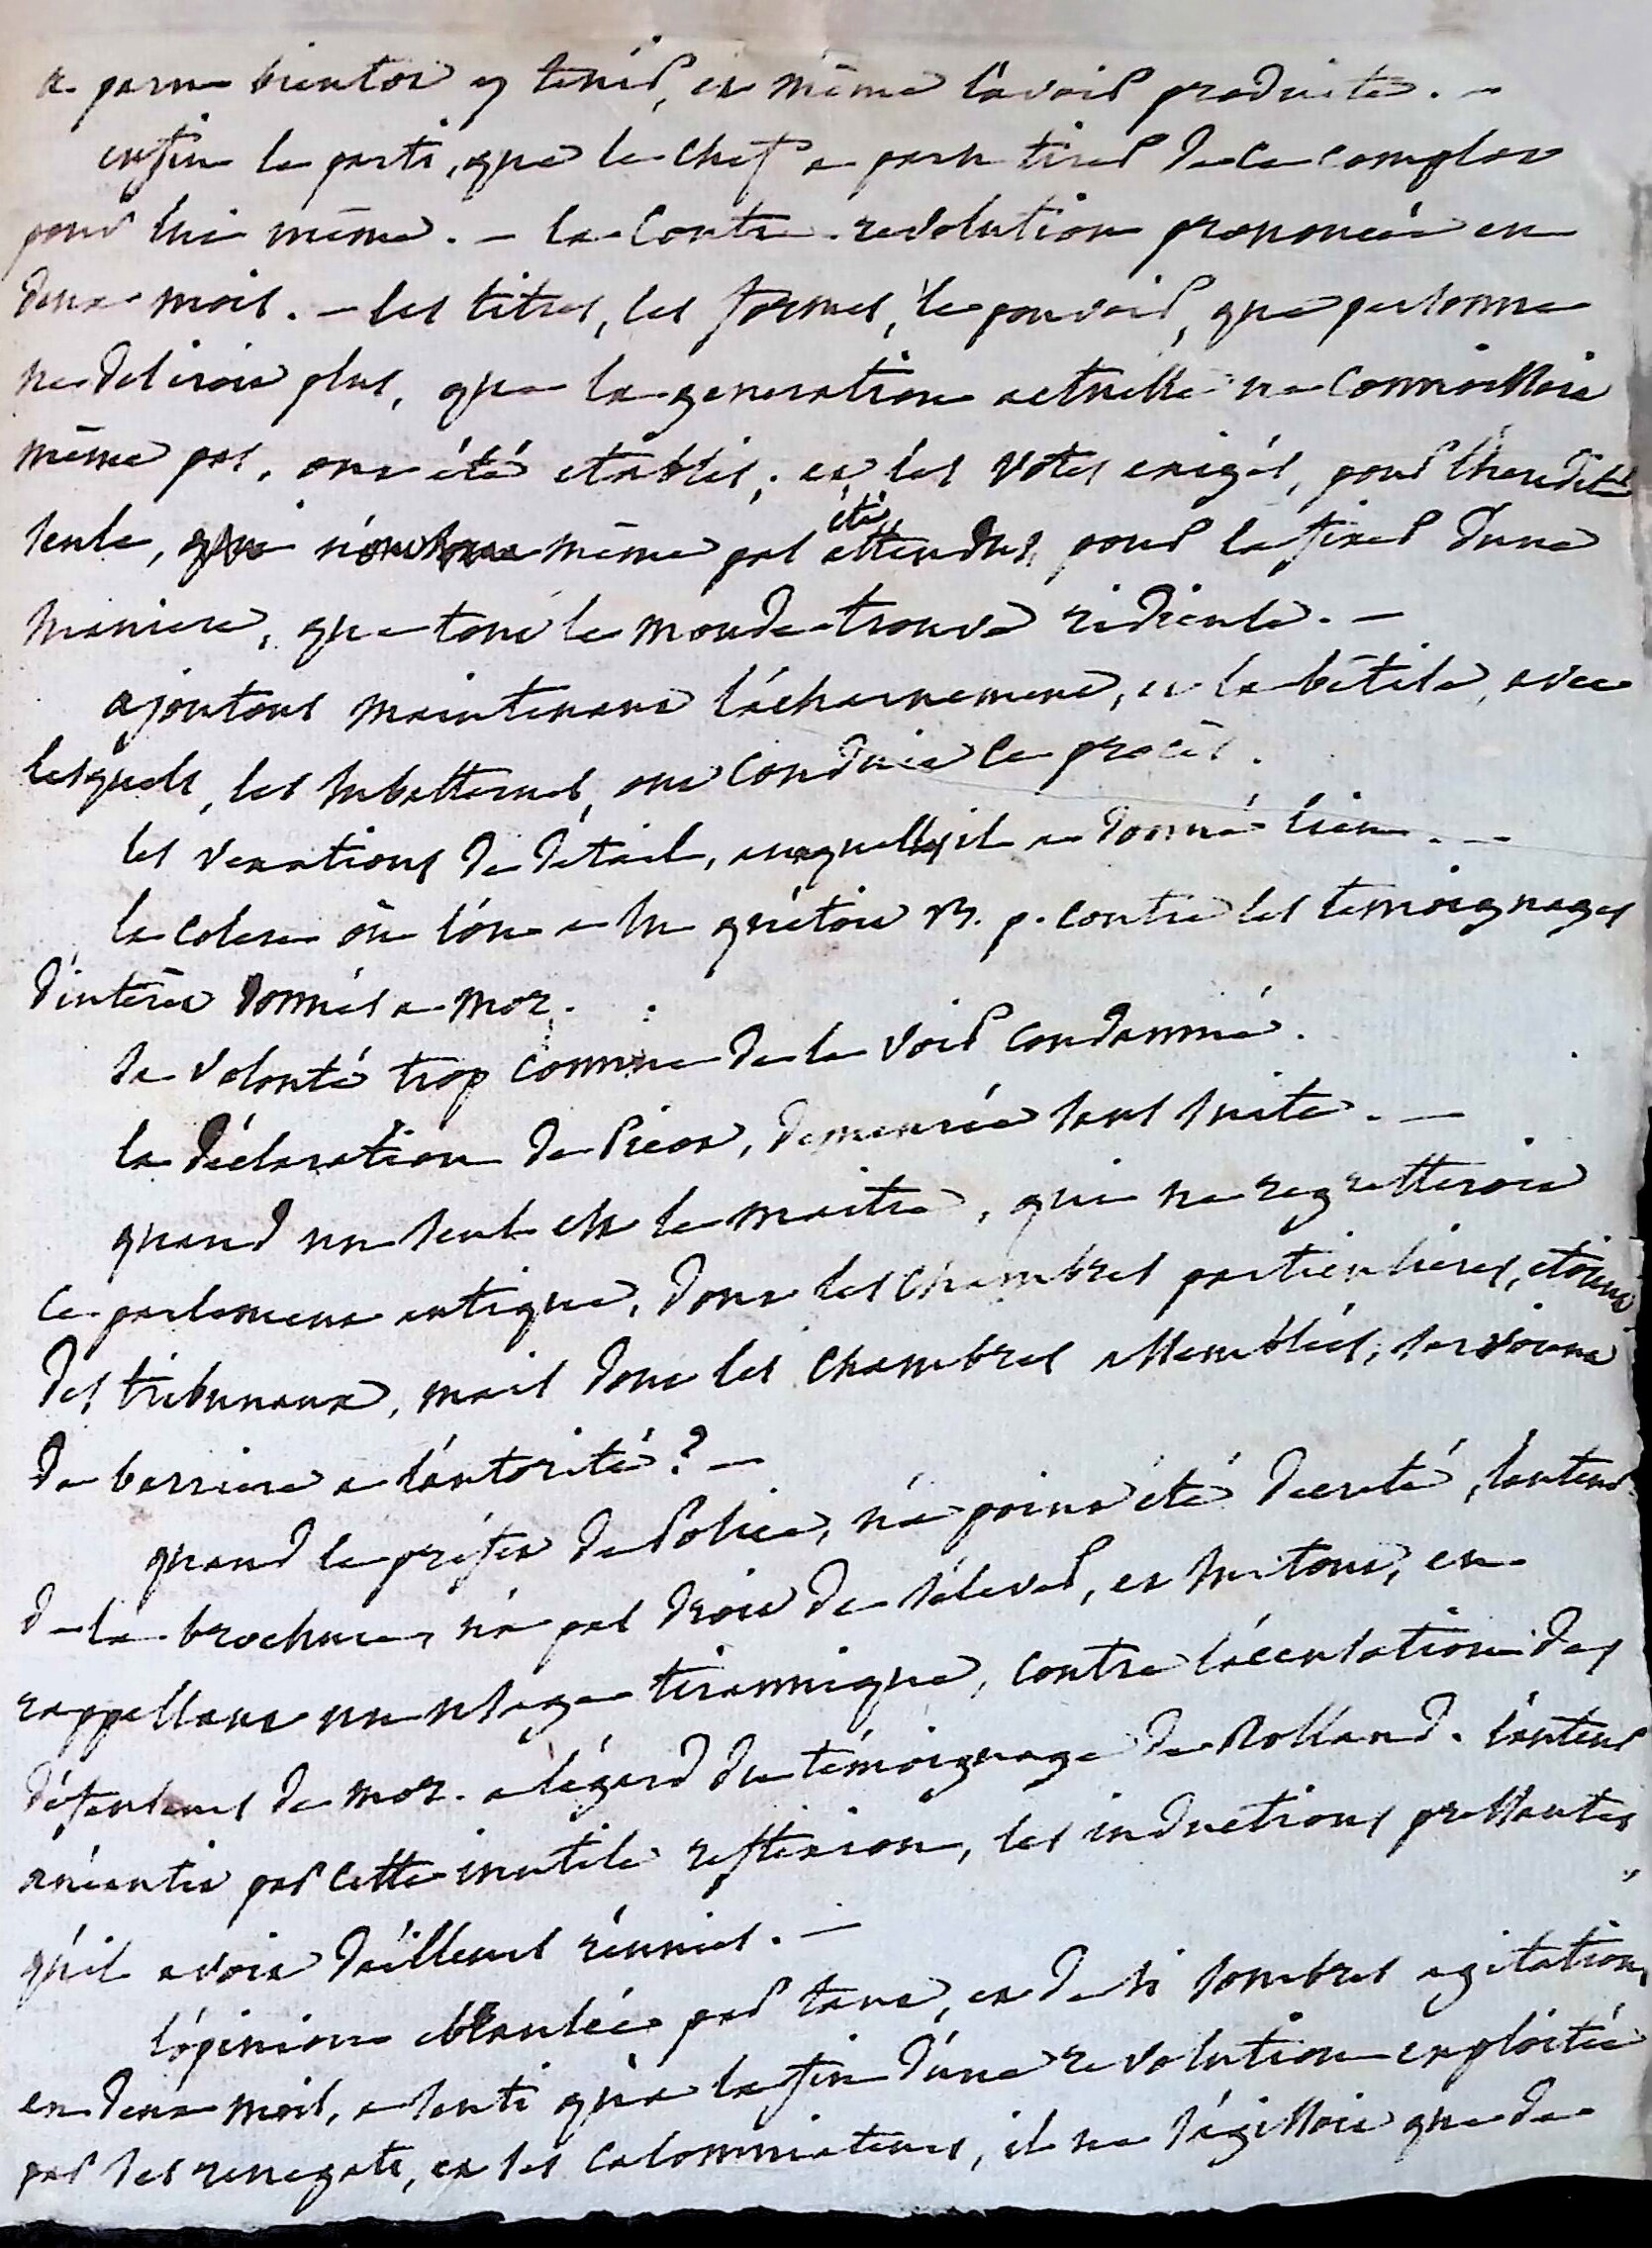 a paru bientot y tenir, et même l'avoir produite. —
enfin le parti, que le chef a paru tirer de ce complot
pour lui même. — la contre-revolution prononcée en
deux mois. — les titres, les formes, le pouvoir, que personne
ne desiroit plus, que la generation actuelle ne connoissoit
même pas, ont été etablis; et les votes exigés, pour l'heredité
seule, n'ont même pas été attendus, pour la fixer d'une
maniere, que tout le monde trouve ridicule. —
ajoutons maintenant l'acharnement, et la bêtise, avec
lesquels, les subalternes, ont conduit ce procès.
les vexations de détail, auxquelles il a donné lieu. —
la colere où l'on a su qu'étoit B. p. contre les temoignages
d'intérêt donnés a mor.
sa volonté trop connue de le voir condamné.
la déclaration de Picot, demeurée sans suite. —
quand un seul est le maitre, qui ne regretteroit
ce parlement antique, dont les chambres particulieres, etoient
des tribunaux, mais dont les chambres assemblées, servoient
de barriere a l'autorité? —
quand le prefet de Police, n'a point été decreté, l'auteur
de la brochure, n'a pas droit de s'élever, et surtout, en
rappellant un usage tirannique, contre l'accusation des
défenseurs de mor. a l'égard du témoignage de Rolland. l'auteur
anéantit par cette inutile reflexion, les inductions pressantes
qu'il avoit d'ailleurs réunies. —
l'opinion ebranlée par tant, et de si sombres agitations
en deux mois, a senti qu'a la fin d'une revolution exploitée
par des renegats, et des calomniateurs, il ne s'agissoit que de